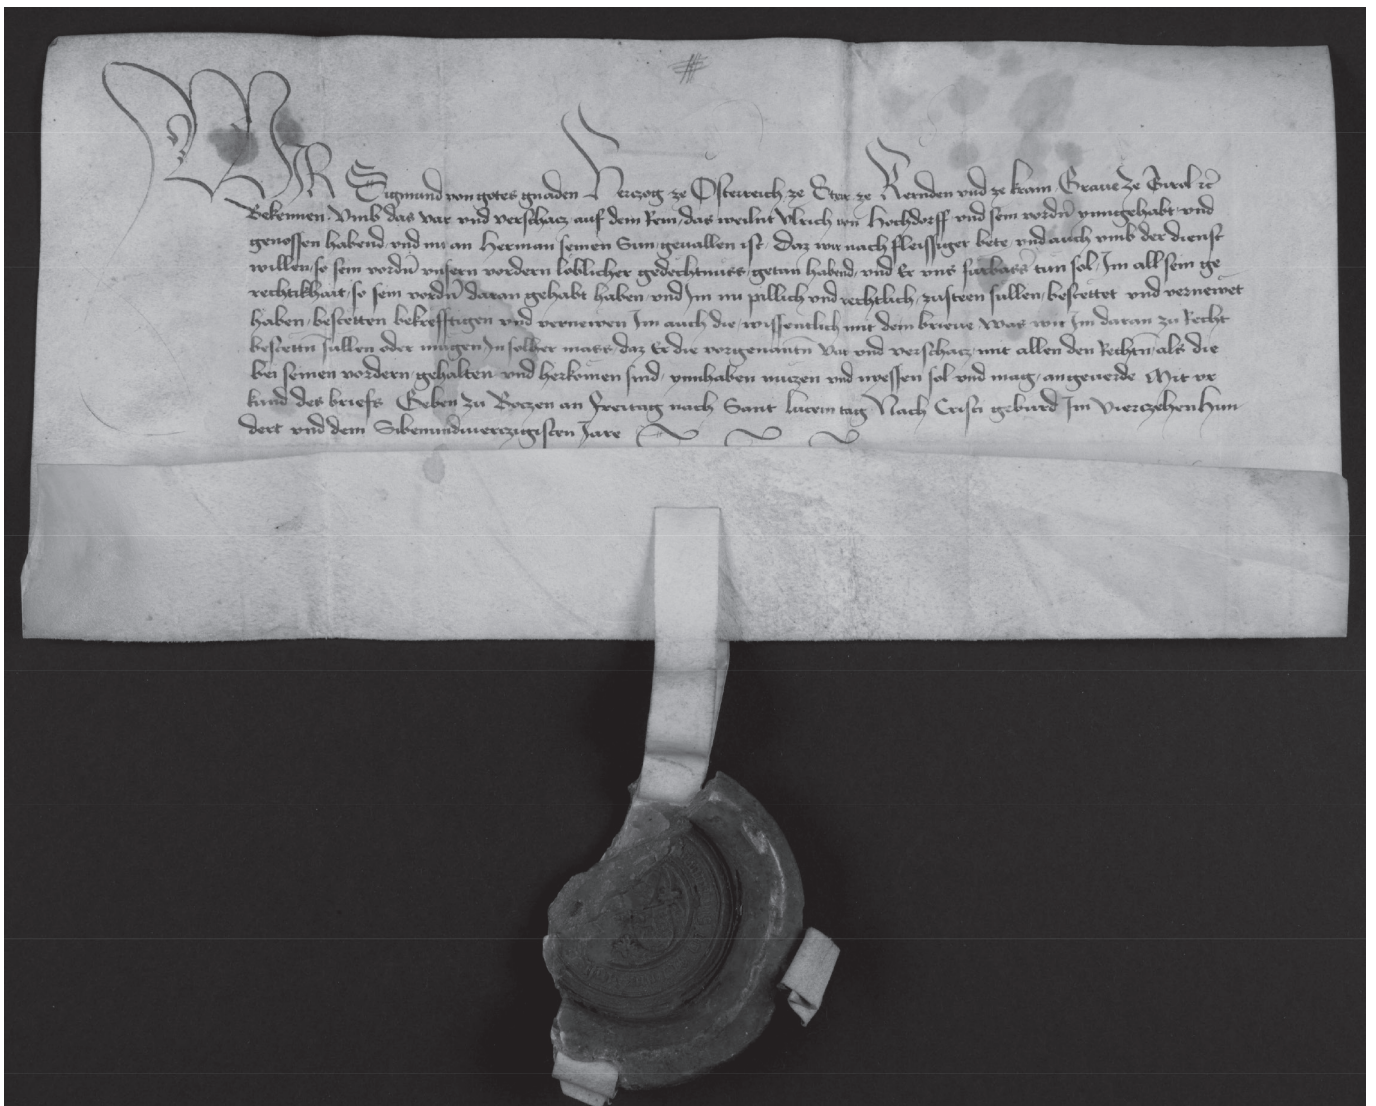 WIR Sigmund von gotes gnaden Herczog ze Österreich ze Steir ze Kernden vnd ze krain Graue ze Tirol etc̃
Bekennen vmb das var vnd verschacz auf dem Rein das weilnt Vlrich von Hochdorff vnd sein vordn̄ ynngehabt vnd
genossen habend vnd nu an Herman seinen Sun geuallen ist Daz wir nach fleissiger bete vnd auch vmb der dienst
willen so sein vordn̄ vnsern vordern löblicher gedechtnuss getan habend vnd Er vns furbass̄ tun sol Im all sein ge
rechtikhait so sein vordn̄ daran gehabt haben vnd Im nu pillich vnd rechtlich zusteen sullen bestettet vnd vernewet
haben bestetten bekrefftigen vnd vernewen Im auch die wissentlich mit dem brieue Was wir Im daran zu Recht
bestettn sullen oder mugen In solher mass daz Er die vorgenantn̄ var vnd verschacz mit allen den Rechtn̄ als die
bei seinen vordern gehalten vnd herkomen sind ynnhaben nuczen vnd niessen sol vnd mag angeuerde Mit vr
kund des briefs Geben zu Boczen an freitag nach Sant lucein tag Nach Cristi geburd Im Vierczehenhun
dert vnd dem Sibenundvierczigisten Jare